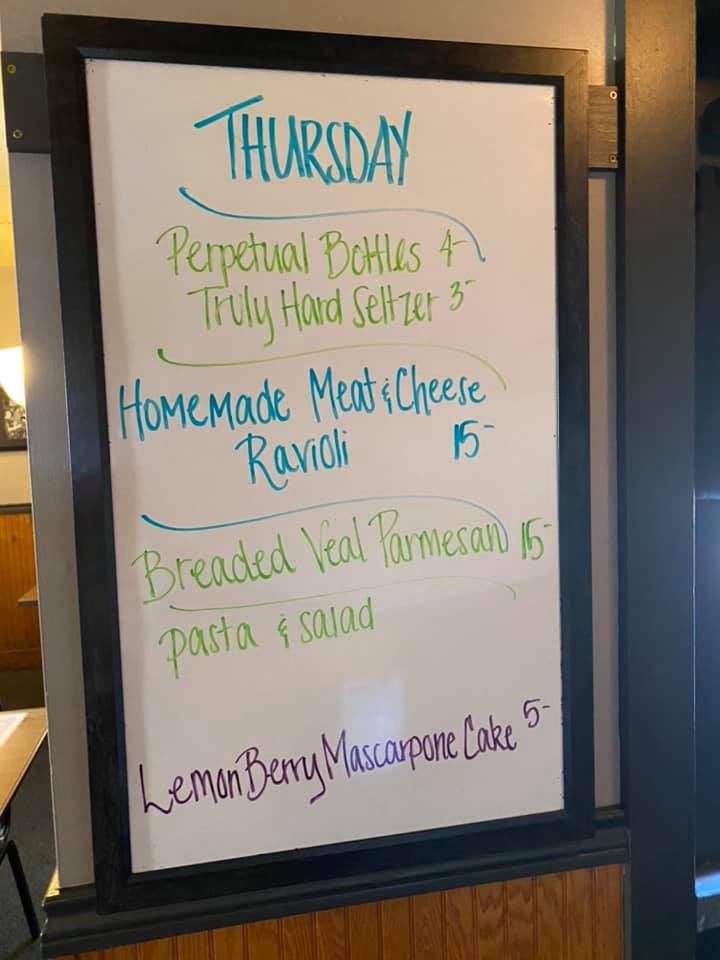 THURSDAY
Perpetual Bottles 4-
Truly Hard Seltzer 3-
Homemade Meat & Cheese
Ravioli 15-
Breaded Veal Parmesan 15-
pasta & salad
Lemon Berry Mascarpone Cake 5-